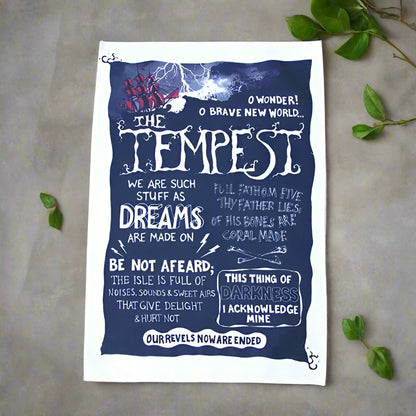 O WONDER!
O BRAVE NEW WORLD...
THE
TEMPEST
WE ARE SUCH
STUFF AS
DREAMS
ARE MADE ON
FULL FATHOM FIVE
THY FATHER LIES;
OF HIS BONES ARE
CORAL MADE
BE NOT AFEARD;
THE ISLE IS FULL OF
NOISES, SOUNDS & SWEET AIRS
THAT GIVE DELIGHT
& HURT NOT
THIS THING OF
DARKNESS
I ACKNOWLEDGE
MINE
OUR REVELS NOW ARE ENDED